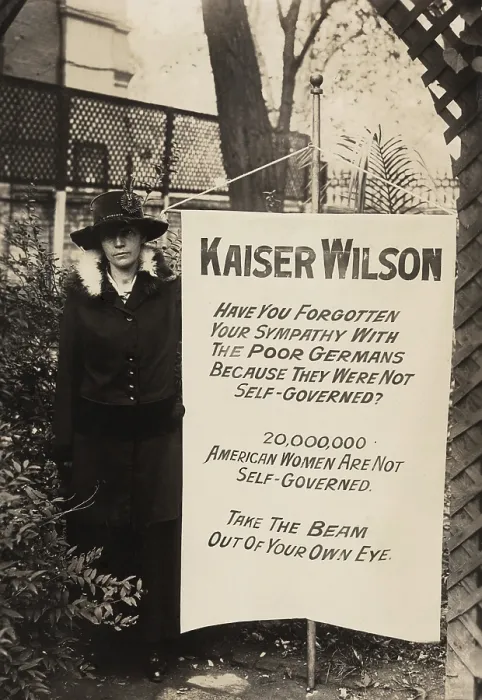 KAISER WILSON
HAVE YOU FORGOTTEN
YOUR SYMPATHY WITH
THE POOR GERMANS
BECAUSE THEY WERE NOT
SELF-GOVERNED?
20,000,000
AMERICAN WOMEN ARE NOT
SELF-GOVERNED.
TAKE THE BEAM
OUT OF YOUR OWN EYE.